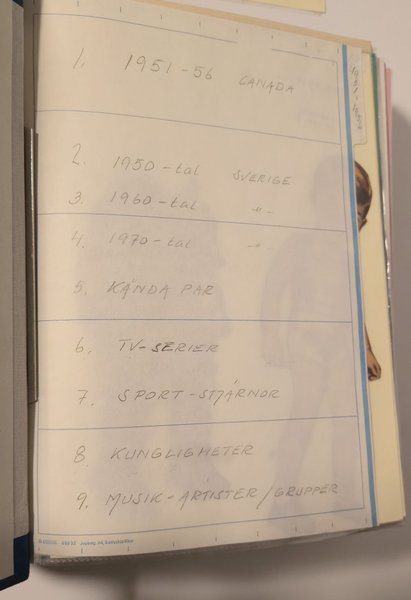 1. 1951-56 CANADA
2. 1950-tal SVERIGE
3. 1960-tal -"-
4. 1970-tal -"-
5. KÄNDA PAR
6. TV-SERIER
7. SPORT-STJÄRNOR
8. KUNGLIGHETER
9. MUSIK-ARTISTER/GRUPPER